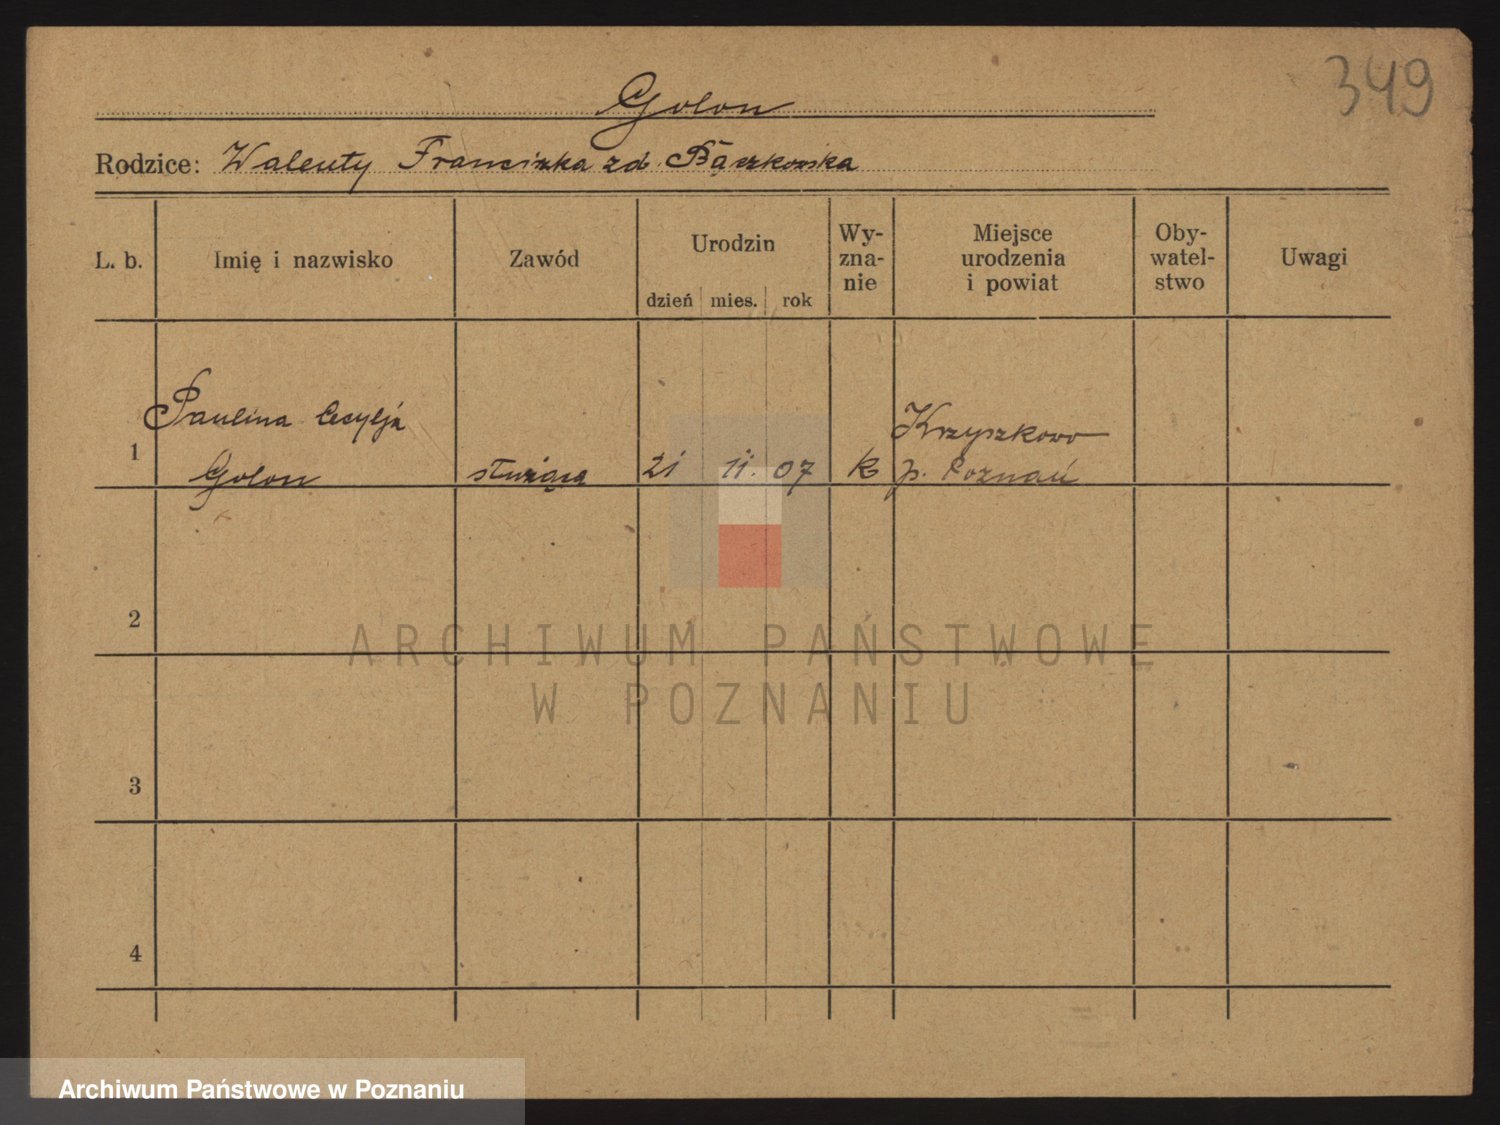 349
Golon
Rodzice: Walenty Franciszka zd. Bączkowska
L. b. Imię i nazwisko Zawód Urodzin Wy-zna-nie Miejsce urodzenia i powiat Oby-watel-stwo Uwagi
dzień mies. rok
Paulina Cecylja Krzyszkowo
1 Golon służąca 21 11. 07 k p. Poznań
2
ARCHIWUM PAŃSTWOWE
W POZNANIU
3
4
Archiwum Państwowe w Poznaniu